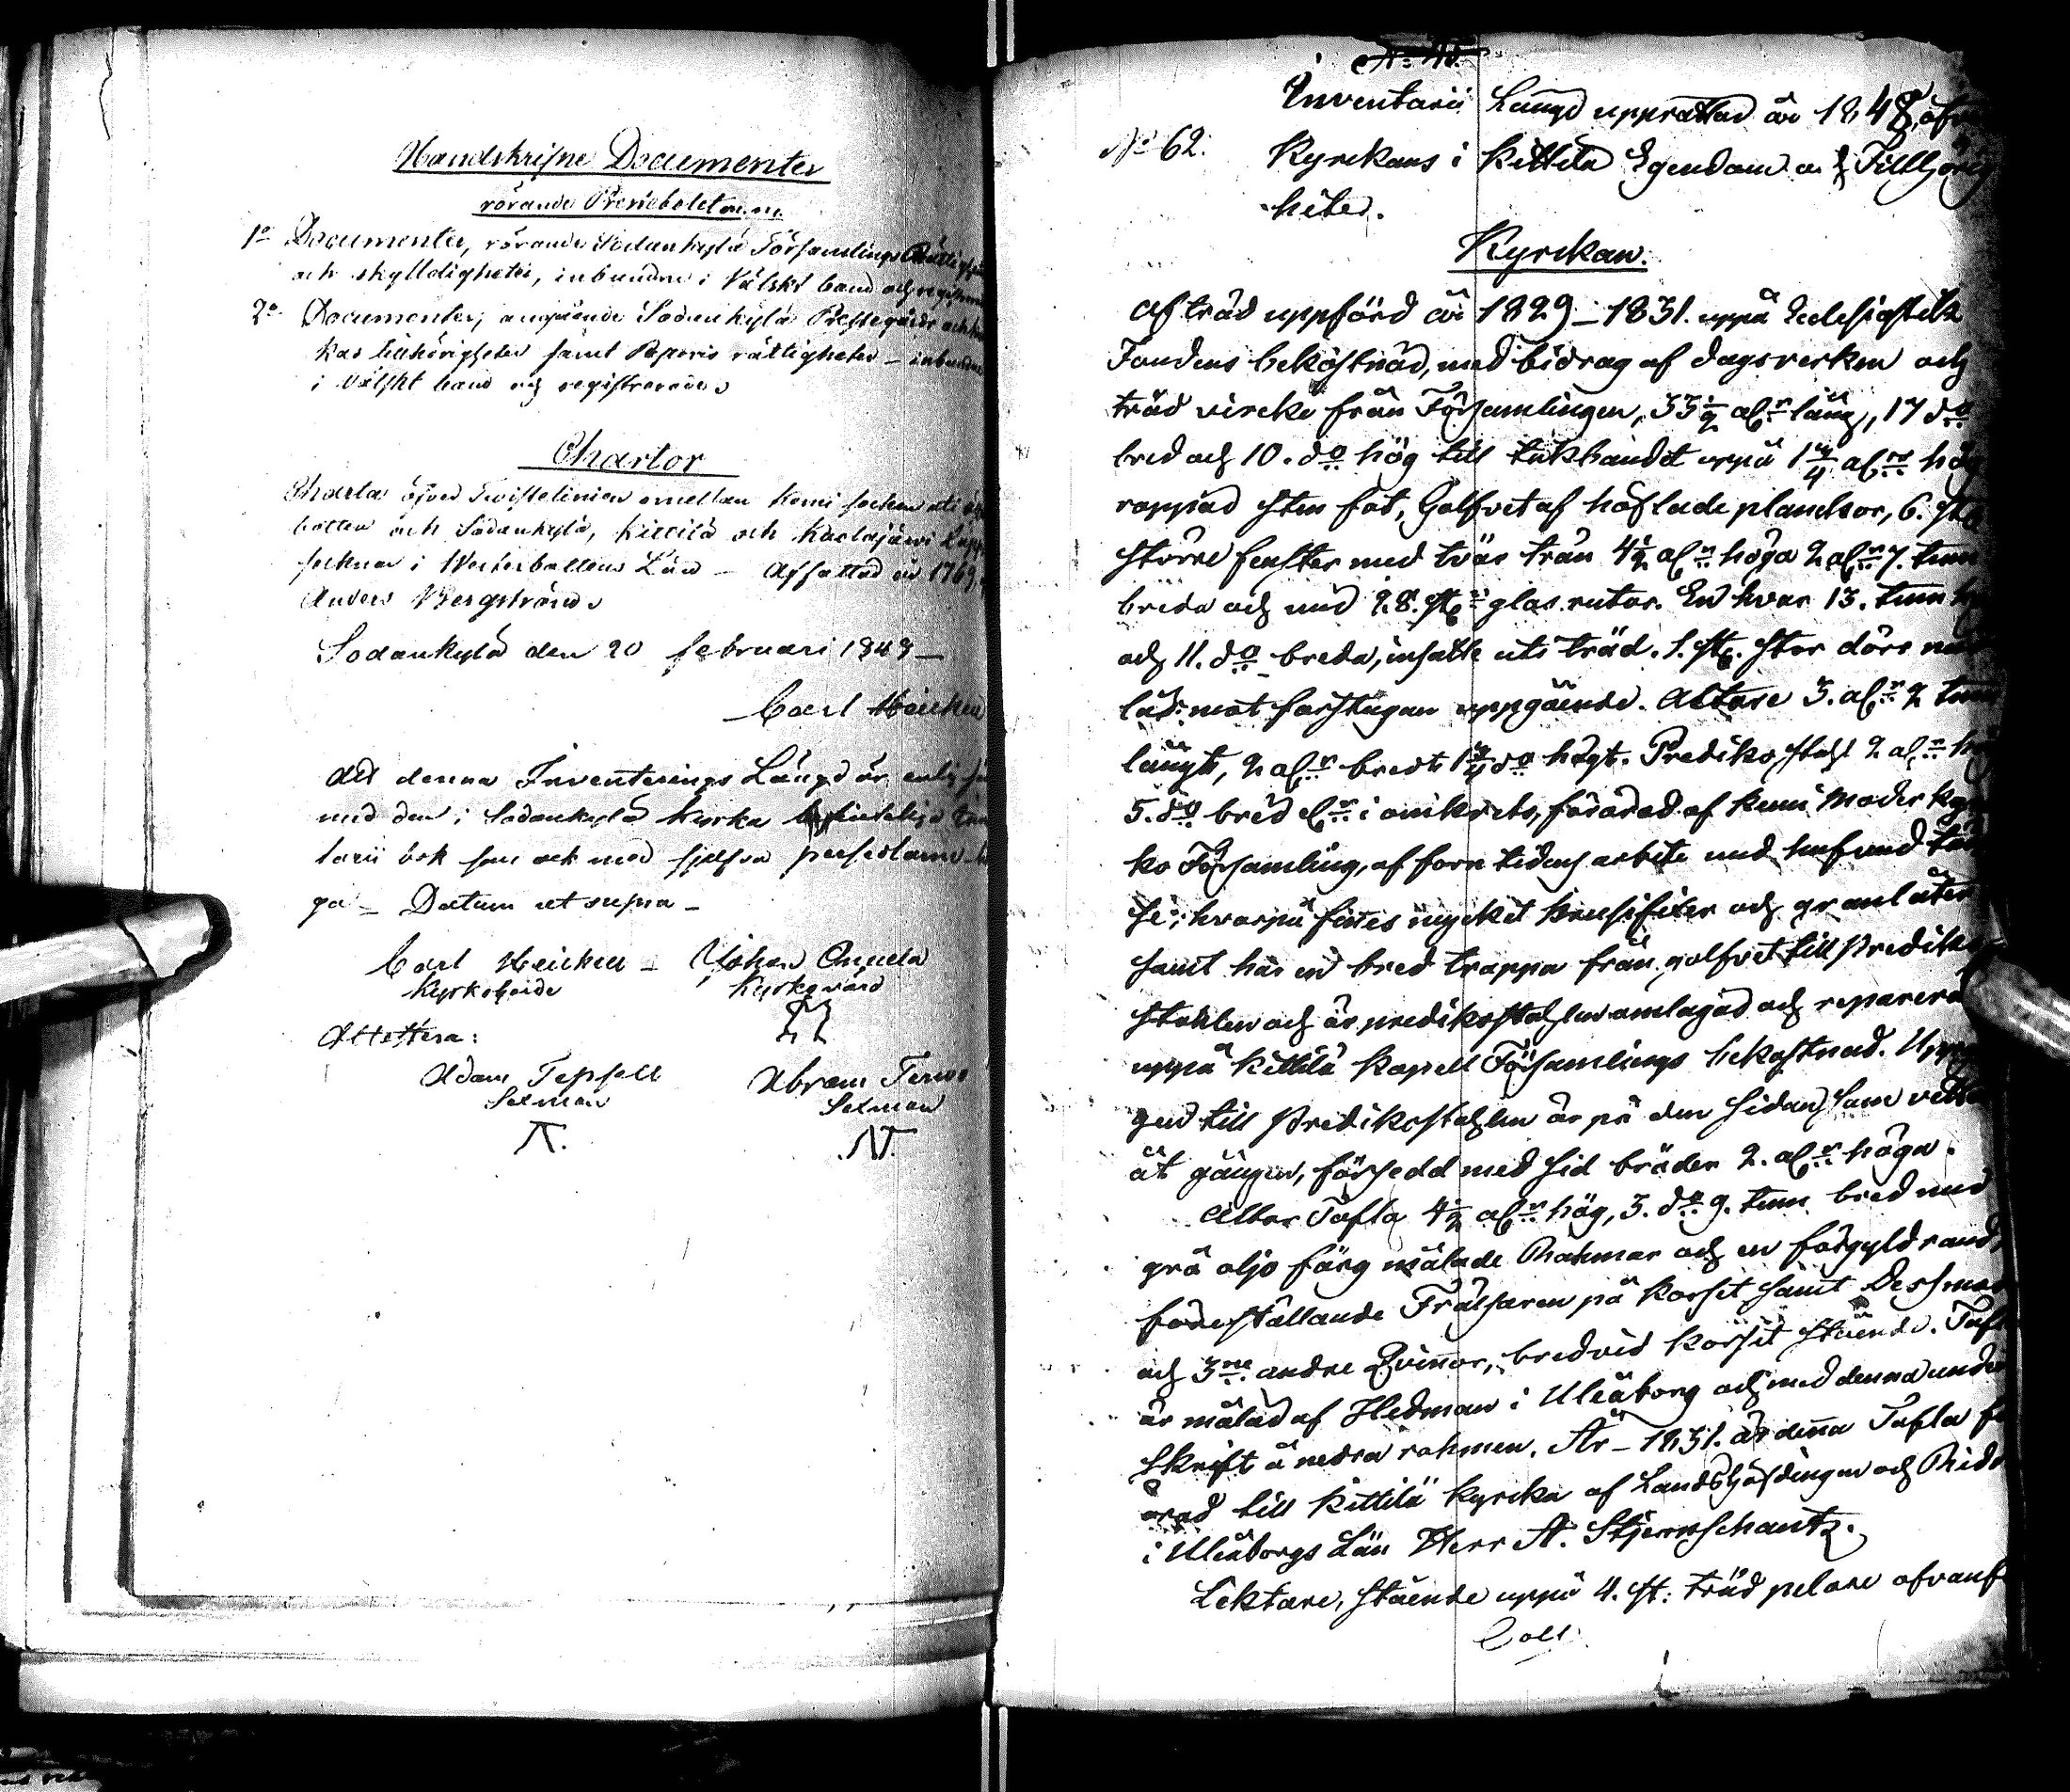 Handskrifne Documenter
rörande Prestebolet m.m.
1o Documenter, rörande Sodankylä Församlings Rättigheter
och skylldigheter, inbundne i Välskt band och
2o Documenter, angående Sodankylä Prestegårds och
kas tillhörigheter samt Pastoris rättigheter – inbundne
i Välskt band och registrerade
Chartor
Charta öfver Twistelinien emellan Kemi socken uti
botten och Sodankylä, Kittilä och Kuolajärvi Lapp
socknar i Westerbottens Län – Affattad år 1769.
Anders Bergström
Sodankylä den 20 februari 1849 –
Carl Heickell
Att denna Inventerings Längd är enlig
med den i Sodankylä kyrka befinteliga
tarii bok som ock med sjelfva persedlarne
ga – Datum ut supra –
Carl Heickell – Johan Onnela
Kyrkoherde Kyrkovärd
Attestera:
Adam Tepsell Abram Tervo
Sexman Sexman
No 62.
Inventarii Längd upprättad år 1848, öfver
Kyrckans i Kittilä Egendom och Tillhörig
heter.
Kyrckan.
Af träd uppförd år 1829–1831. uppå Ecclesiastik
Fondens bekåstnad, med bidrag af dagsverken och
träd vircke från Församlingen, 33½ aln lång, 17 do
bred och 10. do hög till takbandet uppå 1¼ aln hög
rappad sten fot, Golfvet af höflade planckor, 6. st
större fenster med tvär trän 4½ aln höga 2 aln 7. tum
breda och med 28. st glas rutor. En hvar 13. tum
och 11. do breda, insatte uti träd. 1. st. stor dörr med
lås mot farstugan uppgående. Altare 3. aln 2 tum
långt, 2 aln bredt 1¼ do högt. Prediko stohl 2 aln
5. do bred i omkrets, förärad af Kemi Moder Kyr
ko Församling, af forn tidens arbete med
se; hvarpå finnes mycket krusifixer och granlåter
samt har en bred trappa från golfvet till Prediko
stohlen och är predikostohlen omlagad och reparerad
uppå Kittilä Kapell Församlings bekostnad. Uppgån
gen till Predikostohlen är på den sidan som vetter
åt gången, försedd med sid bräder 2. aln höga.
Altar Tafla 4½ aln hög, 3. do 9. tum bred med
grå oljo färg målade Rahmar och en förgyld rand,
föreställande Frälsaren på korset samt Dess mor
och 3ne andre Qvinnor, bredvid korset stående. Taflan
är målad af Hedman i Uleåborg och med denna under
skrift å nedra rahmen. År – 1831. är denna Tafla för
ärad till Kittilä Kyrcka af Landshöfdingen och Ridd
i Uleåborgs Län Herr A. Stjernschantz.
Läktare, stående uppå 4. st: träd pelare